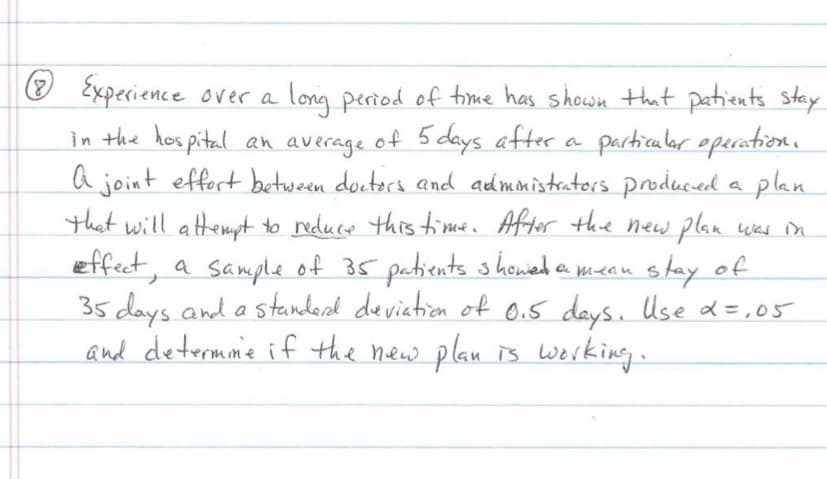 ⑧ Experience over a long period of time has shown that patients stay
in the hospital an average of 5 days after a particular operation.
A joint effort between doctors and administrators produced a plan
that will attempt to reduce this time. After the new plan was in
effect, a sample of 35 patients showed a mean stay of
35 days and a standard deviation of 0.5 days. Use α = .05
and determine if the new plan is working.